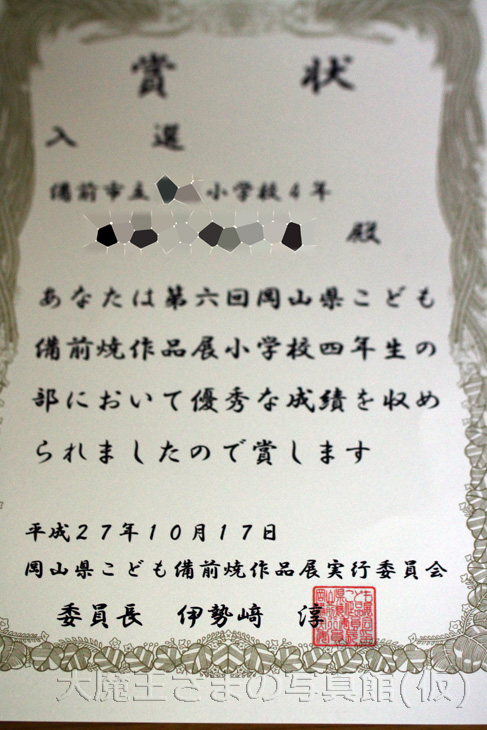 賞状
入選
備前市立 小学校4年
殿
あなたは第六回岡山県こども
備前焼作品展小学校四年生の
部において優秀な成績を収め
られましたので賞します
平成27年10月17日
岡山県こども備前焼作品展実行委員会
委員長 伊勢﨑 淳
大魔王さまの写真館(仮)